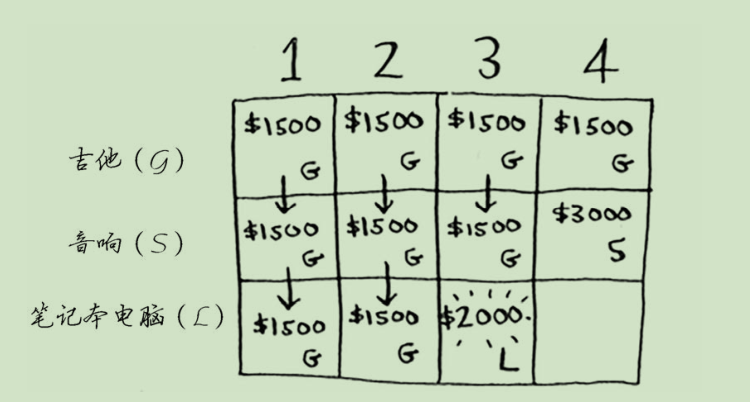 1 2 3 4
吉他(G) $1500 G $1500 G $1500 G $1500 G
音响(S) $1500 G $1500 G $1500 G $3000 S
笔记本电脑(L) $1500 G $1500 G $2000. L